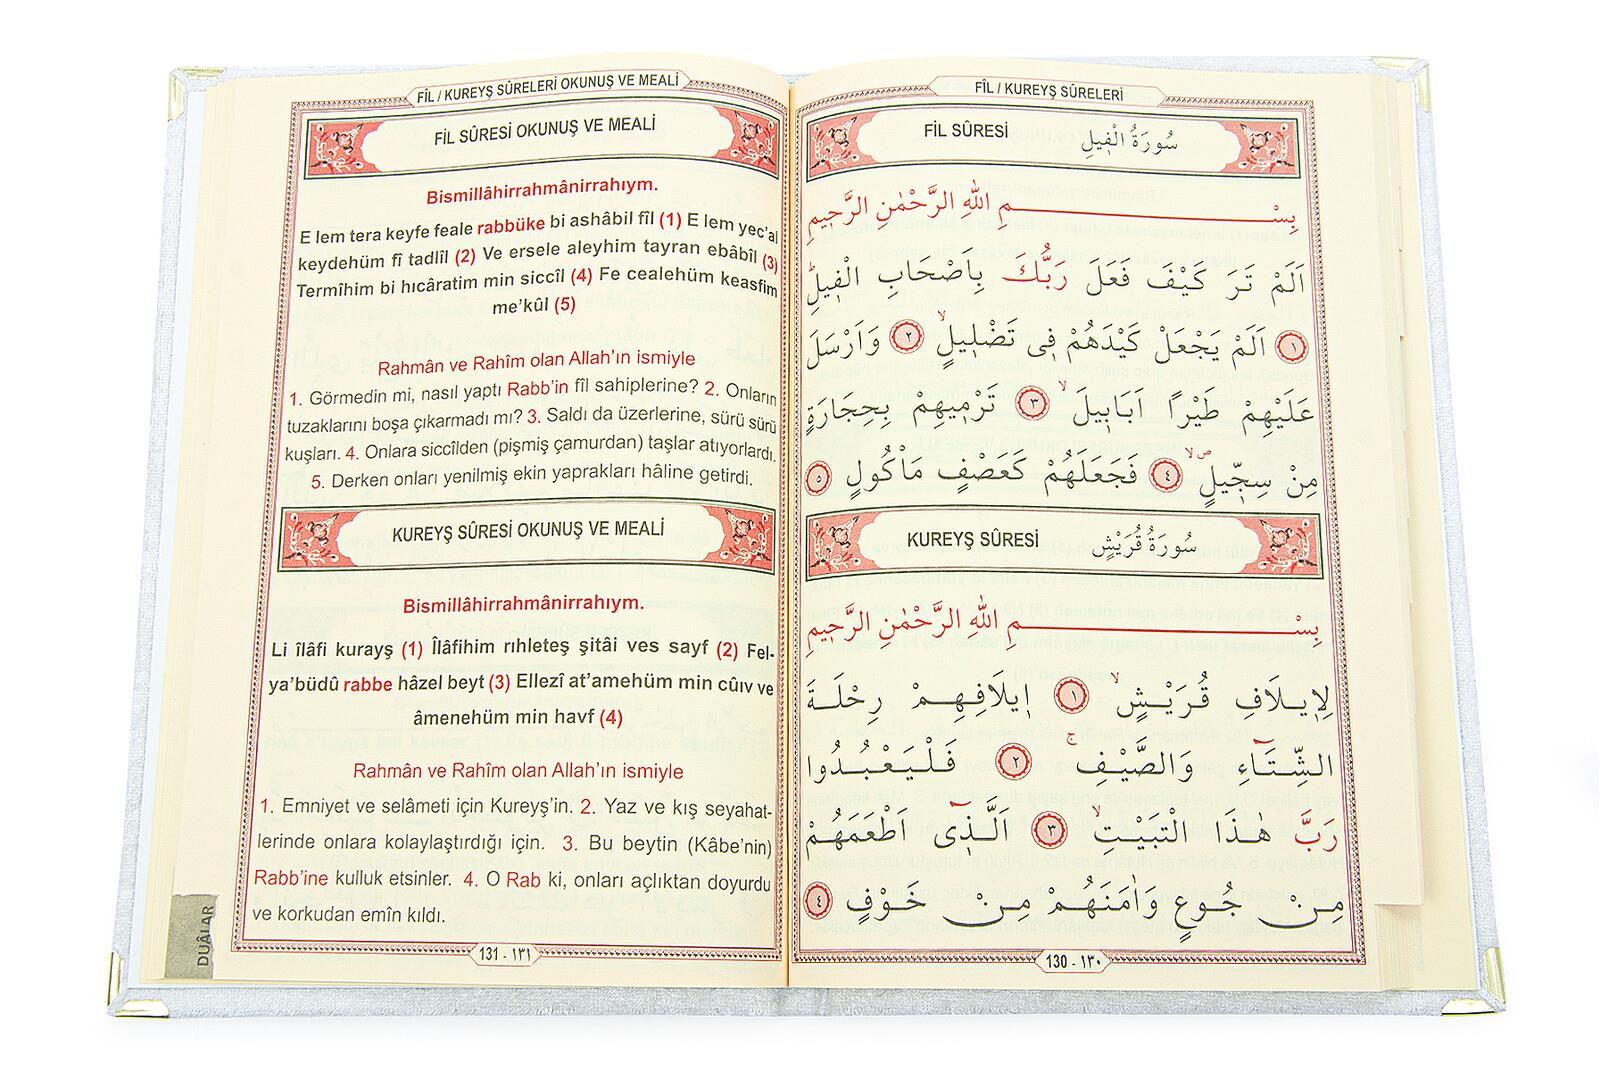 FÎL / KUREYŞ SÛRELERİ OKUNUŞ VE MEALİ
FİL SÛRESİ OKUNUŞ VE MEALİ
Bismillâhirrahmânirrahıym.
E lem tera keyfe feale rabbüke bi ashâbil fîl (1) E lem yec’al
keydehüm fî tadlîl (2) Ve ersele aleyhim tayran ebâbîl (3)
Termîhim bi hıcâratim min siccîl (4) Fe cealehüm keasfim
me’kûl (5)
Rahmân ve Rahîm olan Allah’ın ismiyle
1. Görmedin mi, nasıl yaptı Rabb’in fîl sahiplerine? 2. Onların
tuzaklarını boşa çıkarmadı mı? 3. Saldı da üzerlerine, sürü sürü
kuşları. 4. Onlara siccîlden (pişmiş çamurdan) taşlar atıyorlardı.
5. Derken onları yenilmiş ekin yaprakları hâline getirdi.
KUREYŞ SÛRESİ OKUNUŞ VE MEALİ
Bismillâhirrahmânirrahıym.
Li îlâfi kurayş (1) Îlâfihim rıhleteş şitâi ves sayf (2) Fel-
ya’büdû rabbe hâzel beyt (3) Ellezî at’amehüm min cûıv ve
âmenehüm min havf (4)
Rahmân ve Rahîm olan Allah’ın ismiyle
1. Emniyet ve selâmeti için Kureyş’in. 2. Yaz ve kış seyahat-
lerinde onlara kolaylaştırdığı için. 3. Bu beytin (Kâbe’nin)
Rabb’ine kulluk etsinler. 4. O Rab ki, onları açlıktan doyurdu
ve korkudan emîn kıldı.
DUÂLAR
131 - ١٣١
FÎL / KUREYŞ SÛRELERİ
FİL SÛRESİ سُورَةُ الْفٖيلِ
بِسْمِ اللّٰهِ الرَّحْمٰنِ الرَّحٖيمِ
اَلَمْ تَرَ كَيْفَ فَعَلَ رَبُّكَ بِاَصْحَابِ الْفٖيلِؕ
١ اَلَمْ يَجْعَلْ كَيْدَهُمْ فٖى تَضْلٖيلٍۙ ٢ وَاَرْسَلَ
عَلَيْهِمْ طَيْرًا اَبَابٖيلَۙ ٣ تَرْمٖيهِمْ بِحِجَارَةٍ
مِنْ سِجّٖيلٍۙ ٤ فَجَعَلَهُمْ كَعَصْفٍ مَاْكُولٍ ٥
KUREYŞ SÛRESİ سُورَةُ قُرَيْشٍ
بِسْمِ اللّٰهِ الرَّحْمٰنِ الرَّحٖيمِ
لِاٖيلَافِ قُرَيْشٍۙ ١ اٖيلَافِهِمْ رِحْلَةَ
الشِّتَٓاءِ وَالصَّيْفِۚ ٢ فَلْيَعْبُدُوا
رَبَّ هٰذَا الْبَيْتِۙ ٣ اَلَّذٖٓى اَطْعَمَهُمْ
مِنْ جُوعٍ وَاٰمَنَهُمْ مِنْ خَوْفٍ ٤
130 - ١٣٠